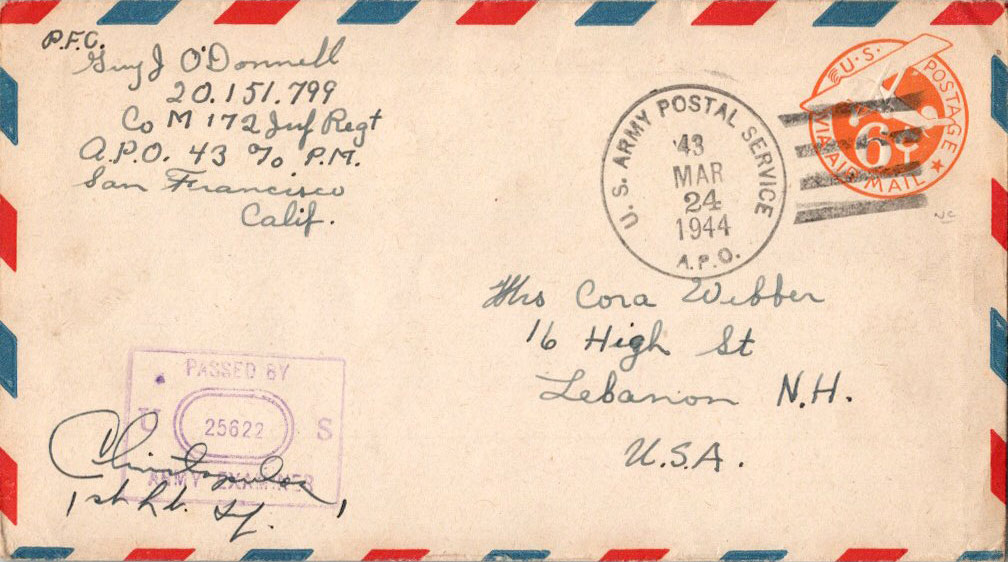 P.F.C.
Guy J O'Donnell
20.151.799
Co M 172 Inf Regt
A.P.O. 43 c/o P.M.
San Francisco
Calif.
U. S. ARMY POSTAL SERVICE
43
MAR
24
1944
A.P.O.
U.S. POSTAGE
6¢
VIA AIR MAIL
Mrs Cora Webber
16 High St
Lebanon N.H.
U.S.A.
PASSED BY
U 25622 S
ARMY EXAMINER
1st Lt. Inf.